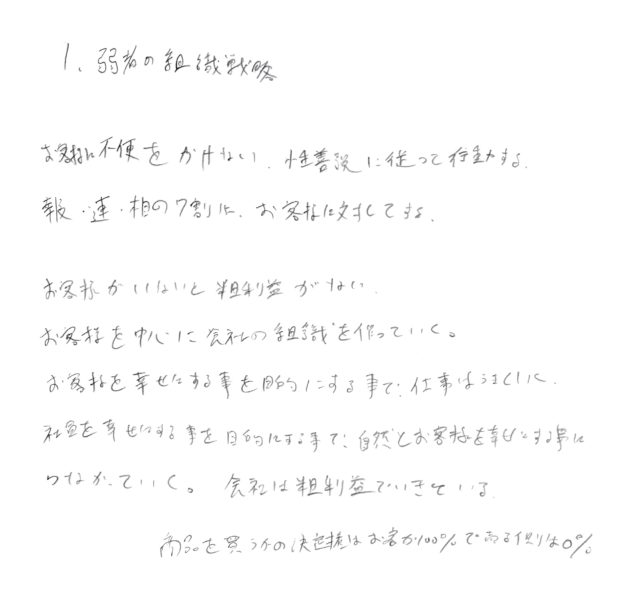 1. 弱者の組織戦略
お客様に不便をかけない、性善説に従って行動する。
報・連・相の7割は、お客様に対してする。
お客様がいないと粗利益がない。
お客様を中心に会社の組織を作っていく。
お客様を幸せにする事を目的にする事で、仕事はうまくいく
社員を幸せにする事を目的にする事で、自然とお客様を幸せにする事に
つながっていく。 会社は粗利益でいきている
商品を買うかの決定権はお客が100%で売る側は0%